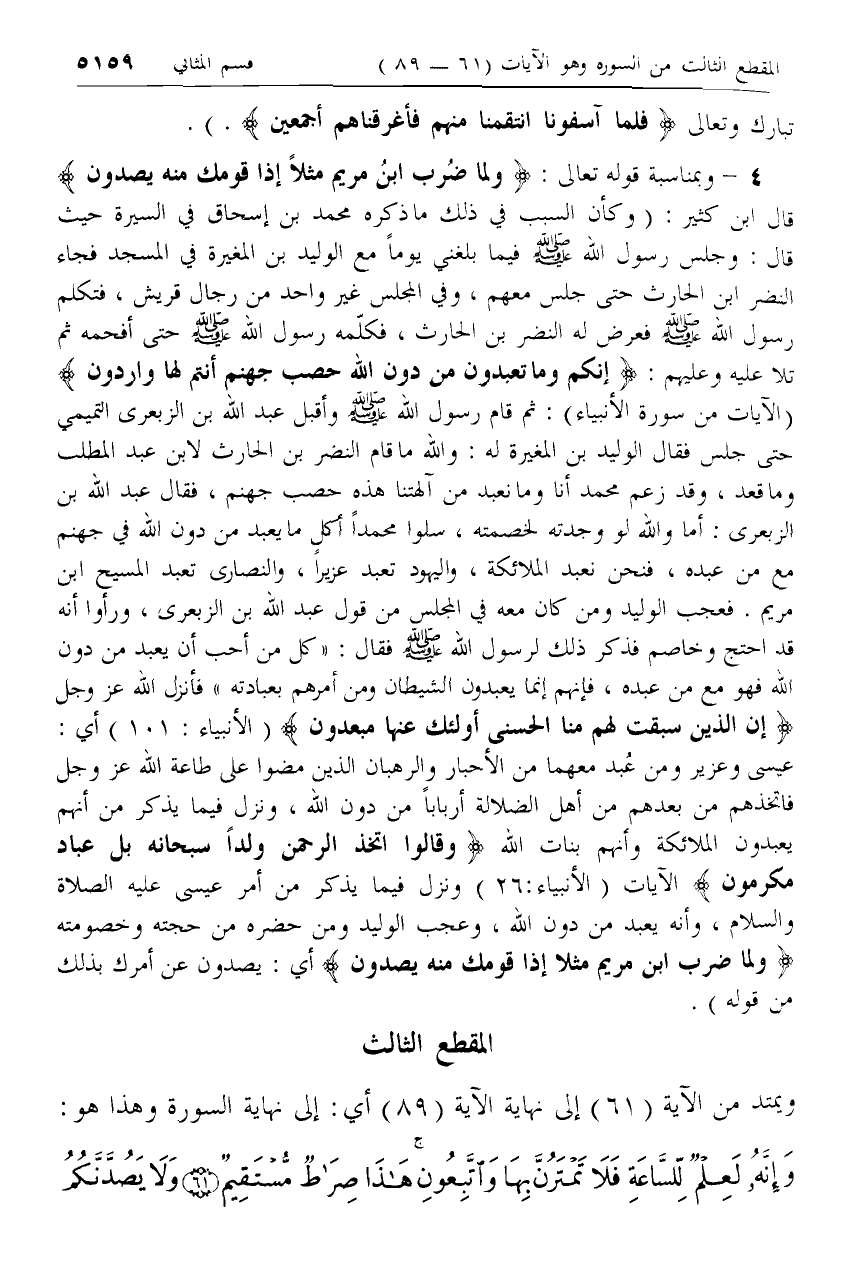 المقطع الثالث من السوره وهو الآيات (٦١ — ٨٩) قسم المثاني ٥١٥٩
تبارك وتعالى ﴿ فلما آسفونا انتقمنا منهم فأغرقناهم أجمعين ﴾ . ) .
٤ – وبمناسبة قوله تعالى : ﴿ ولما ضُرب ابنُ مريم مثلاً إذا قومك منه يصدون ﴾
قال ابن كثير : ( وكأن السبب في ذلك ماذكره محمد بن إسحاق في السيرة حيث
قال : وجلس رسول الله ﷺ فيما بلغني يوماً مع الوليد بن المغيرة في المسجد فجاء
النضر ابن الحارث حتى جلس معهم ، وفي المجلس غير واحد من رجال قريش ، فتكلم
رسول الله ﷺ فعرض له النضر بن الحارث ، فكلّمه رسول الله ﷺ حتى أفحمه ثم
تلا عليه وعليهم : ﴿ إنكم وماتعبدون من دون الله حصب جهنم أنتم لها واردون ﴾
(الآيات من سورة الأنبياء) : ثم قام رسول الله ﷺ وأقبل عبد الله بن الزبعرى التميمي
حتى جلس فقال الوليد بن المغيرة له : والله ماقام النضر بن الحارث لابن عبد المطلب
وماقعد ، وقد زعم محمد أنا ومانعبد من آلهتنا هذه حصب جهنم ، فقال عبد الله بن
الزبعرى : أما والله لو وجدته لخصمته ، سلوا محمداً أكل مايعبد من دون الله في جهنم
مع من عبده ، فنحن نعبد الملائكة ، واليهود تعبد عزيراً ، والنصارى تعبد المسيح ابن
مريم . فعجب الوليد ومن كان معه في المجلس من قول عبد الله بن الزبعرى ، ورأوا أنه
قد احتج وخاصم فذكر ذلك لرسول الله ﷺ فقال : « كل من أحب أن يعبد من دون
الله فهو مع من عبده ، فإنهم إنما يعبدون الشيطان ومن أمرهم بعبادته » فأنزل الله عز وجل
﴿ إن الذين سبقت لهم منا الحسنى أولئك عنها مبعدون ﴾ ( الأنبياء : ١٠١ ) أي :
عيسى وعزير ومن عُبد معهما من الأحبار والرهبان الذين مضوا على طاعة الله عز وجل
فاتخذهم من بعدهم من أهل الضلالة أرباباً من دون الله ، ونزل فيما يذكر من أنهم
يعبدون الملائكة وأنهم بنات الله ﴿ وقالوا اتخذ الرحمن ولداً سبحانه بل عباد
مكرمون ﴾ الآيات ( الأنبياء:٢٦ ) ونزل فيما يذكر من أمر عيسى عليه الصلاة
والسلام ، وأنه يعبد من دون الله ، وعجب الوليد ومن حضره من حجته وخصومته
﴿ ولما ضرب ابن مريم مثلا إذا قومك منه يصدون ﴾ أي : يصدون عن أمرك بذلك
من قوله ) .
المقطع الثالث
ويمتد من الآية (٦١) إلى نهاية الآية (٨٩) أي: إلى نهاية السورة وهذا هو :
وَإِنَّهُۥ لَعِلۡمٞ لِّلسَّاعَةِ فَلَا تَمۡتَرُنَّ بِهَا وَٱتَّبِعُونِۚ هَٰذَا صِرَٰطٞ مُّسۡتَقِيمٞ ﴿٦١﴾ وَلَا يَصُدَّنَّكُمُ